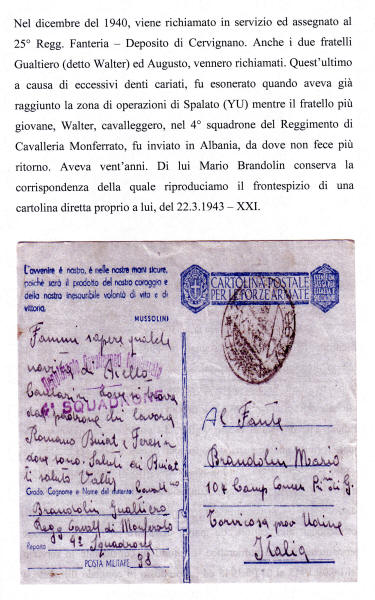 Nel dicembre del 1940, viene richiamato in servizio ed assegnato al
25° Regg. Fanteria – Deposito di Cervignano. Anche i due fratelli
Gualtiero (detto Walter) ed Augusto, vennero richiamati. Quest'ultimo
a causa di eccessivi denti cariati, fu esonerato quando aveva già
raggiunto la zona di operazioni di Spalato (YU) mentre il fratello più
giovane, Walter, cavalleggero, nel 4° squadrone del Reggimento di
Cavalleria Monferrato, fu inviato in Albania, da dove non fece più
ritorno. Aveva vent'anni. Di lui Mario Brandolin conserva la
corrispondenza della quale riproduciamo il frontespizio di una
cartolina diretta proprio a lui, del 22.3.1943 – XXI.
L'avvenire è nostro, è nelle nostre mani sicure,
poichè sarà il prodotto del nostro coraggio e
della nostra inesauribile volontà di vita e di
vittoria.
MUSSOLINI
CARTOLINA POSTALE
PER LE FORZE ARMATE
Fammi sapere qualche
novità di Aiello
dal padrone di lavora
Romano Buiat
dove sono. Saluti ai Buiat
ti saluto
4° SQUADRONE
Grado, Cognome e Nome del mittente
Brandolin Gualtiero
Regg Cavall di Monferrato
Reparto 4° Squadrone
POSTA MILITARE 98
Al Fante
Brandolin Mario
104 Camp G.
Torviscosa Udine
Italia